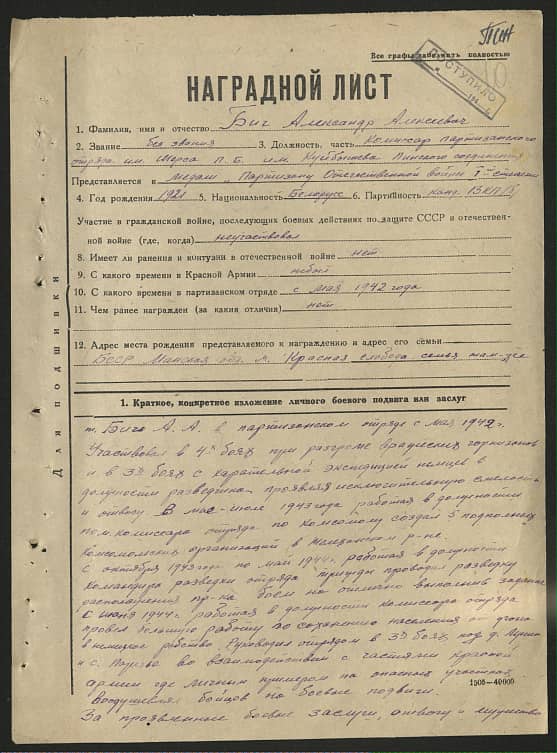 Все графы заполнять полностью
ПОСТУПИЛО
НАГРАДНОЙ ЛИСТ
1. Фамилия, имя и отчество Бич Александр Алексеевич
2. Звание без звания 3. Должность, часть Комиссар партизанского
отряда им. Щорса П.Б. им. Куйбышева Пинского соединения
Представляется к медали „Партизану Отечественной войны I-степени
4. Год рождения 1921 5. Национальность Белорус 6. Партийность канд. ВКП/б/
Участие в гражданской войне, последующих боевых действиях по защите СССР и отечествен-
ной войне (где, когда) неучаствовал
8. Имеет ли ранения и контузии в отечественной войне нет
9. С какого времени в Красной Армии небыл
10. С какого времени в партизанском отряде с мая 1942 года
11. Чем ранее награжден (за какия отличия) нет
12. Адрес места рождения представляемого к награждению и адрес его семьи
БССР Минская обл. м. Красная слобода семья там-же
Для подшивки
1. Краткое, конкретное изложение личного боевого подвига или заслуг
т. Бич А. А. в партизанском отряде с мая 1942г.
Участвовал в 4х боях при разгроме вражеских гарнизонов
и в 3х боях с карательной экспедицией немцев в
должности разведчика, проявляя исключительную смелость
и отвагу. В мае-июле 1943 года работая в должности
пом. комиссара отряда по комсомолу создал 5 подпольных
комсомольских организаций в р-не.
С октября 1943 года по май 1944г. работая в должности
Командира разведки отряда трижды проводил разведку
расположения пр-ка боем на отлично выполнив задание
С июня 1944г. работая в должности комиссара отряда
провел большую работу по сохранению населения от угона
в немецкое рабство. Руководил отрядом в 3х боях под д.
и с. во взаимодействии с частями красной
армии где личным примером на опасных участках
Воодушевлял бойцов на боевые подвиги.
1506—40000
За проявленные боевые заслуги, отвагу и мужество